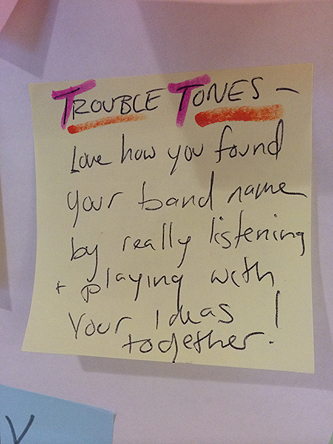 TROUBLE TONES –
Love how you found
your band name
by really listening
+ playing with
your ideas
together!